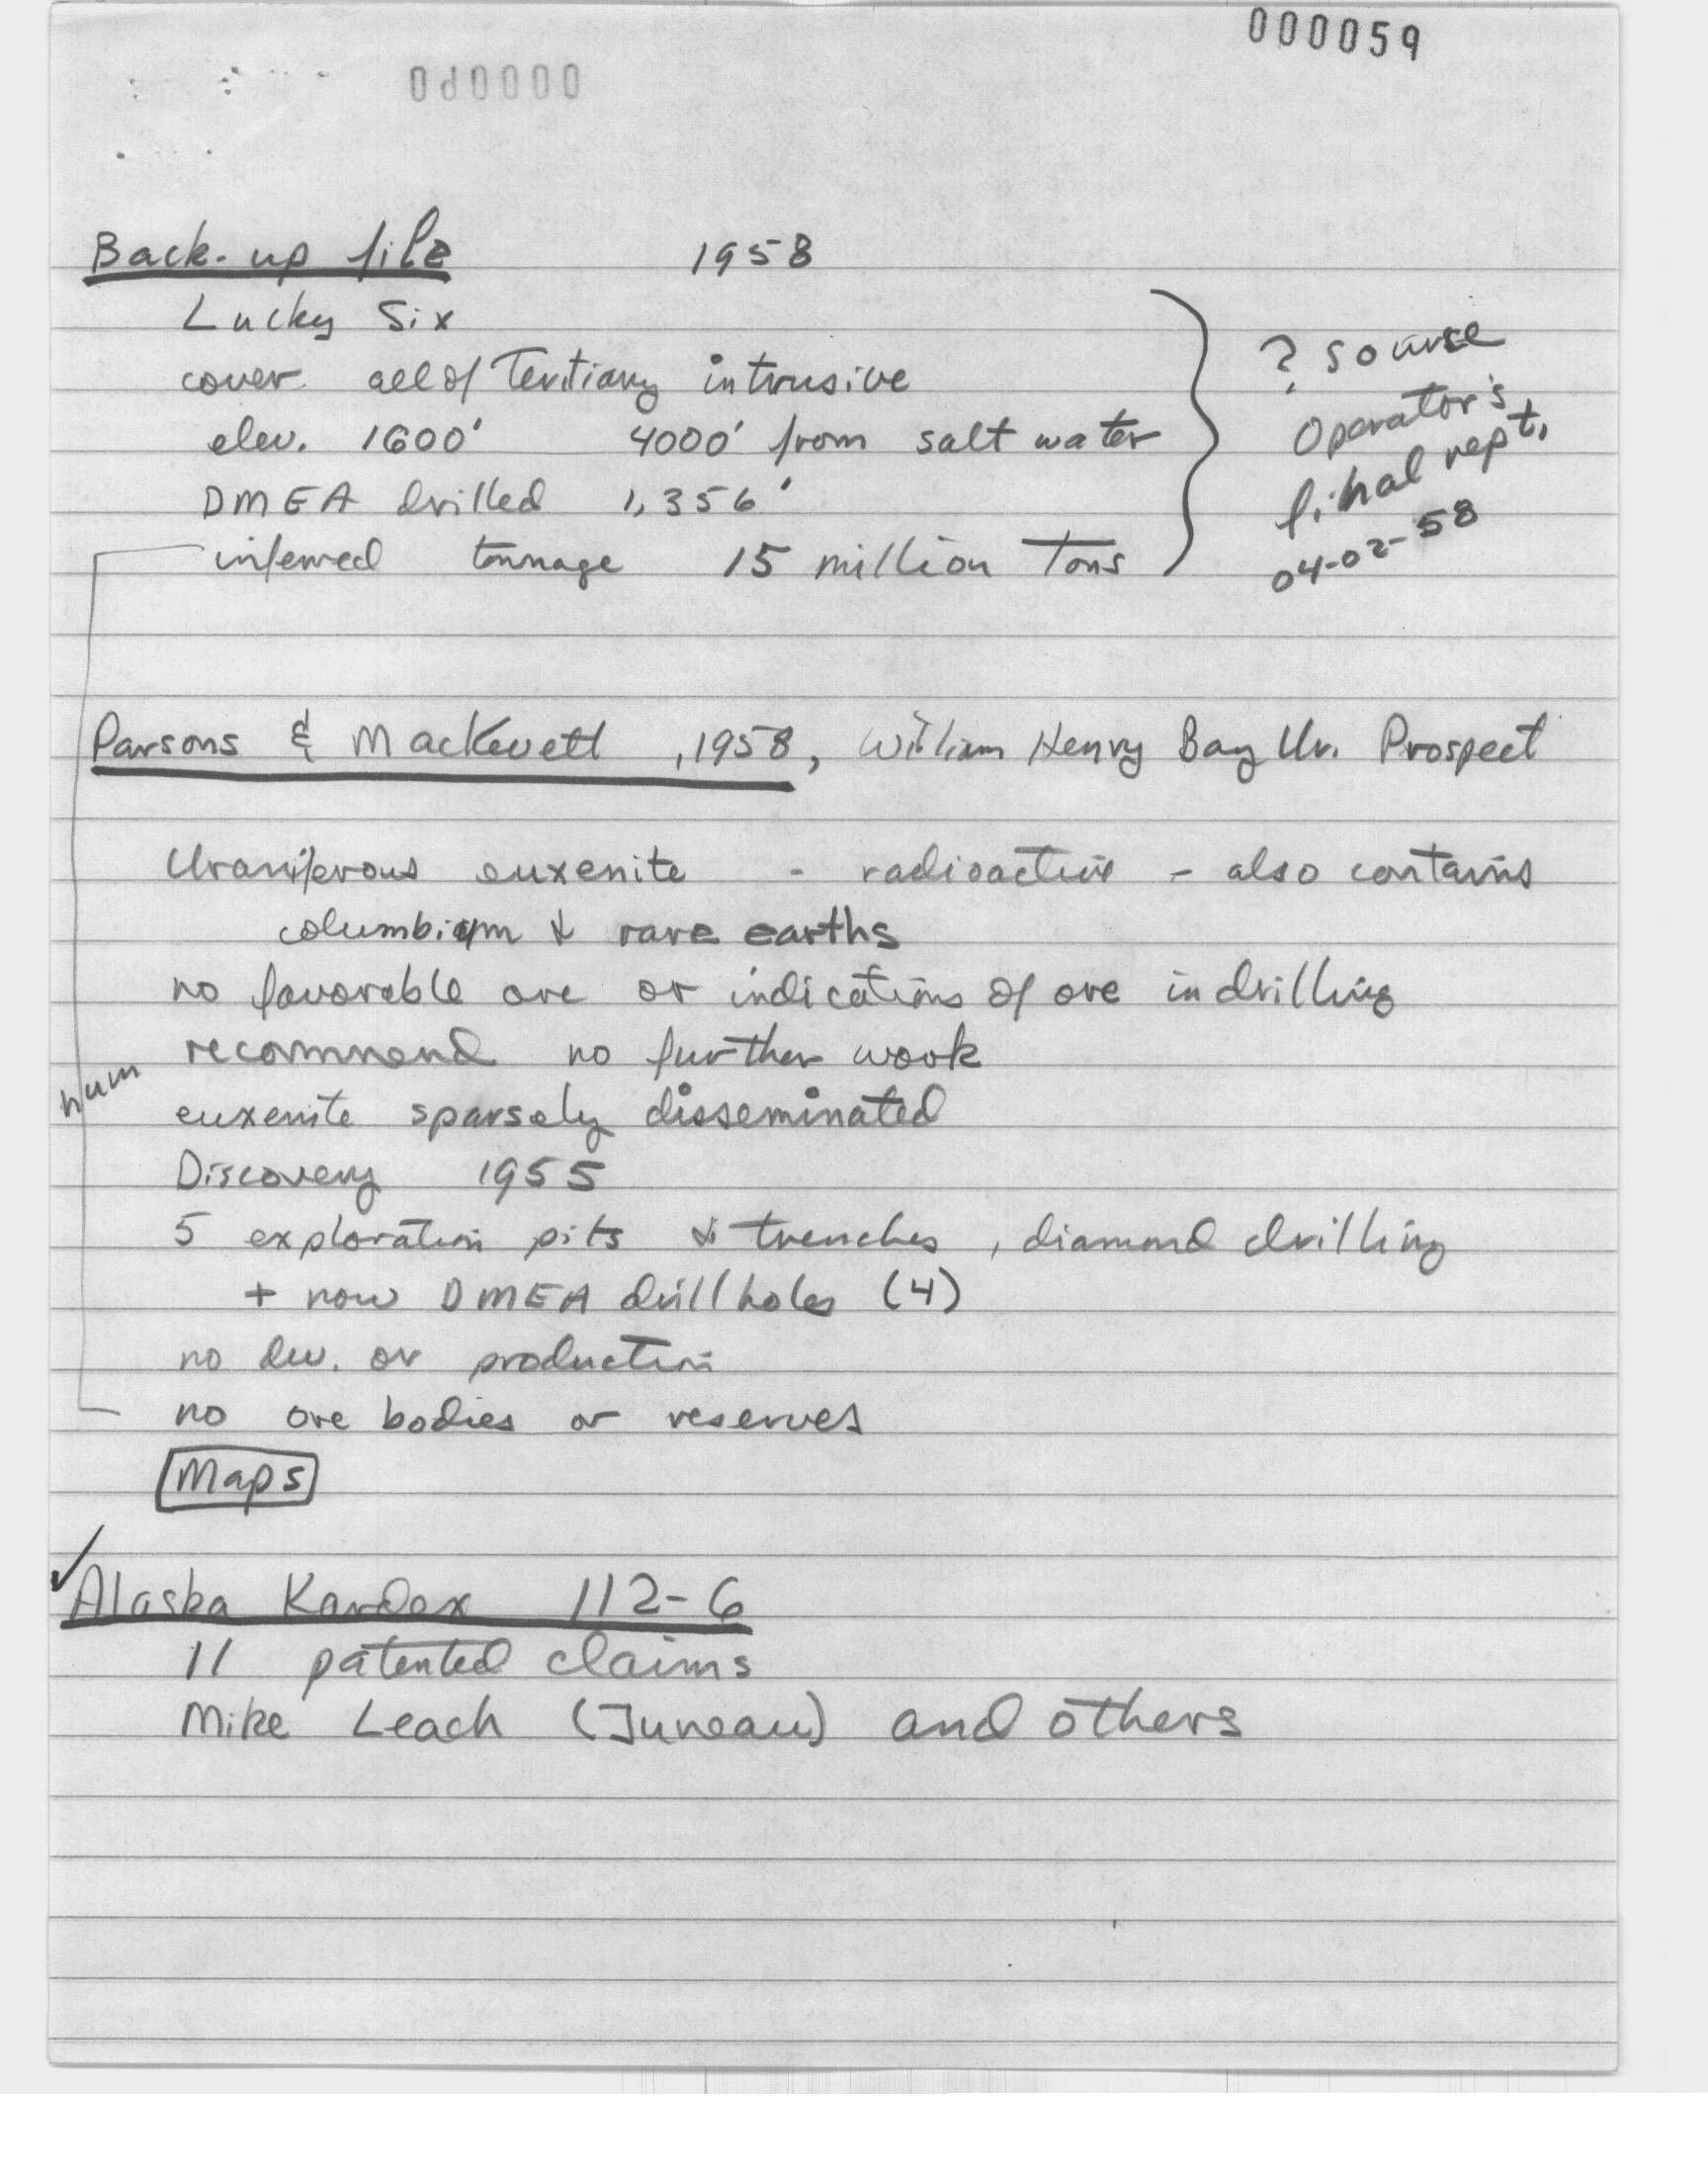 000059
Back-up file 1958
Lucky Six
cover all of Tertiary intrusive
elev. 1600' 4000' from salt water
DMEA drilled 1,356'
inferred tonnage 15 million Tons
? source
Operator's
final rept.
04-02-58
Parsons & MacKevett, 1958, William Henry Bay Ur. Prospect
Uraniferous euxenite - radioactive - also contains
columbium & rare earths
no favorable ore or indications of ore in drilling
recommend no further work
hum
euxenite sparsely disseminated
Discovery 1955
5 exploration pits & trenches, diamond drilling
+ now DMEA drill holes (4)
no dev. or production
no ore bodies or reserves
Maps
✓ Alaska Kardex 112-6
11 patented claims
Mike Leach (Juneau) and others